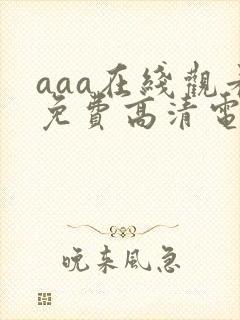 aaa在綫觀看
免費高清電
晚来風急